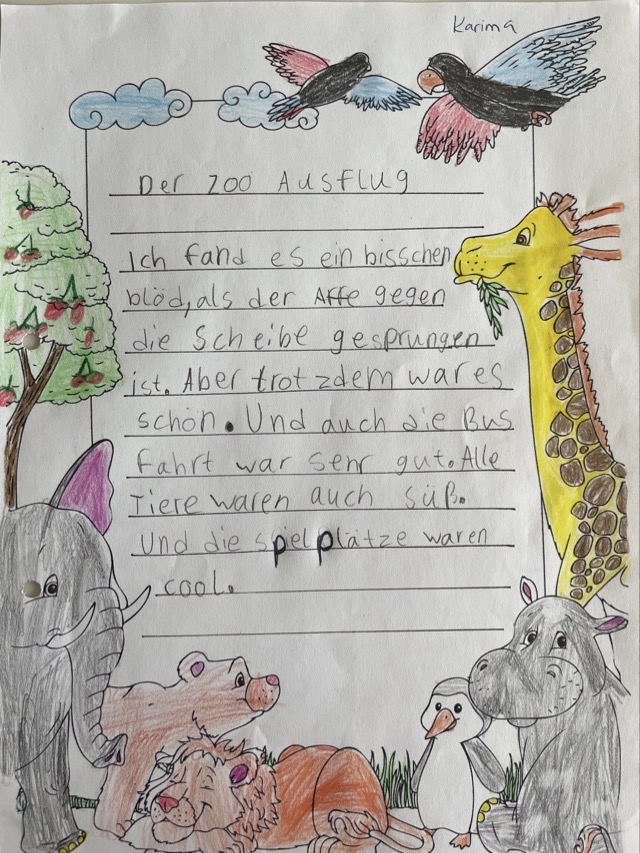 Karima
Der Zoo Ausflug
Ich fand es ein bisschen
blöd, als der Affe gegen
die Scheibe gesprungen
ist. Aber trotzdem war es
schön. Und auch die Bus
fahrt war sehr gut. Alle
Tiere waren auch süß.
Und die spielplätze waren
cool.